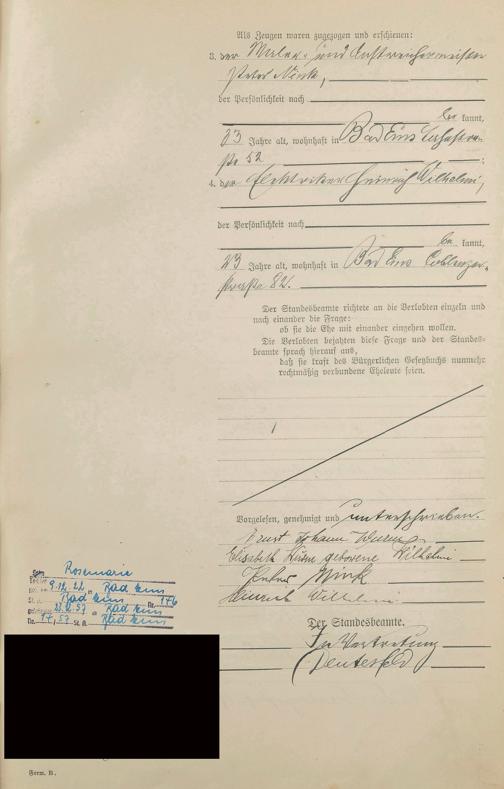 Als Zeugen waren zugezogen und erschienen:
3. der Maler- und Anstreichermeister
Peter Nink,
der Persönlichkeit nach
be kannt,
Jahre alt, wohnhaft in Bad Ems
52 ;
4. der Elektriker Heinrich Wilhelmi,
der Persönlichkeit nach
be kannt,
23 Jahre alt, wohnhaft in Bad Ems Coblenzer-
straße 82.
Der Standesbeamte richtete an die Verlobten einzeln und
nach einander die Frage:
ob sie die Ehe mit einander eingehen wollen.
Die Verlobten bejahten diese Frage und der Standes-
beamte sprach hierauf aus,
daß sie kraft des Bürgerlichen Gesetzbuchs nunmehr
rechtmäßig verbundene Eheleute seien.
Vorgelesen, genehmigt und unterschrieben.
Ernst Johann
Elisabeth geborene Wilhelmi
Peter Nink
Heinrich Wilhelmi
Der Standesbeamte.
In Vertretung
Rosemarie
9.12.22 Bad Ems
St. A. Bad Ems Nr. 176
57 Bad Ems
Nr. 57 St. A. Bad Ems
Form. B.